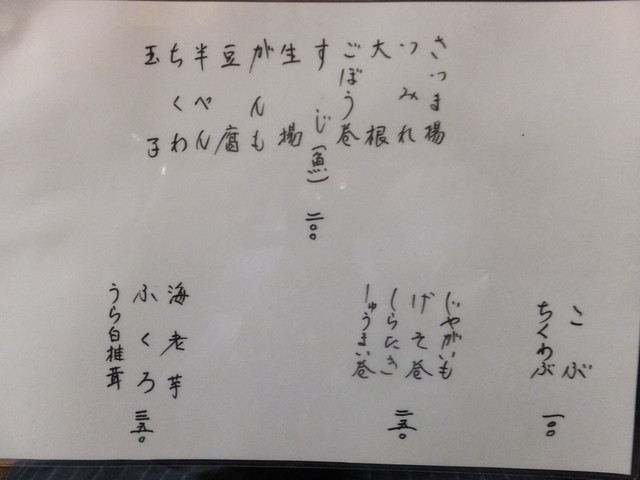 さつま揚
つみれ
大根
ごぼう巻
すじ(魚)
二〇〇
生揚
がんも
豆腐
半ぺん
ちくわ
玉子
こぶ
ちくわぶ
一〇〇
じゃがいも
げそ巻
しらたき
しゅうまい巻
二五〇
海老芋
ふくろ
うら白椎茸
三五〇